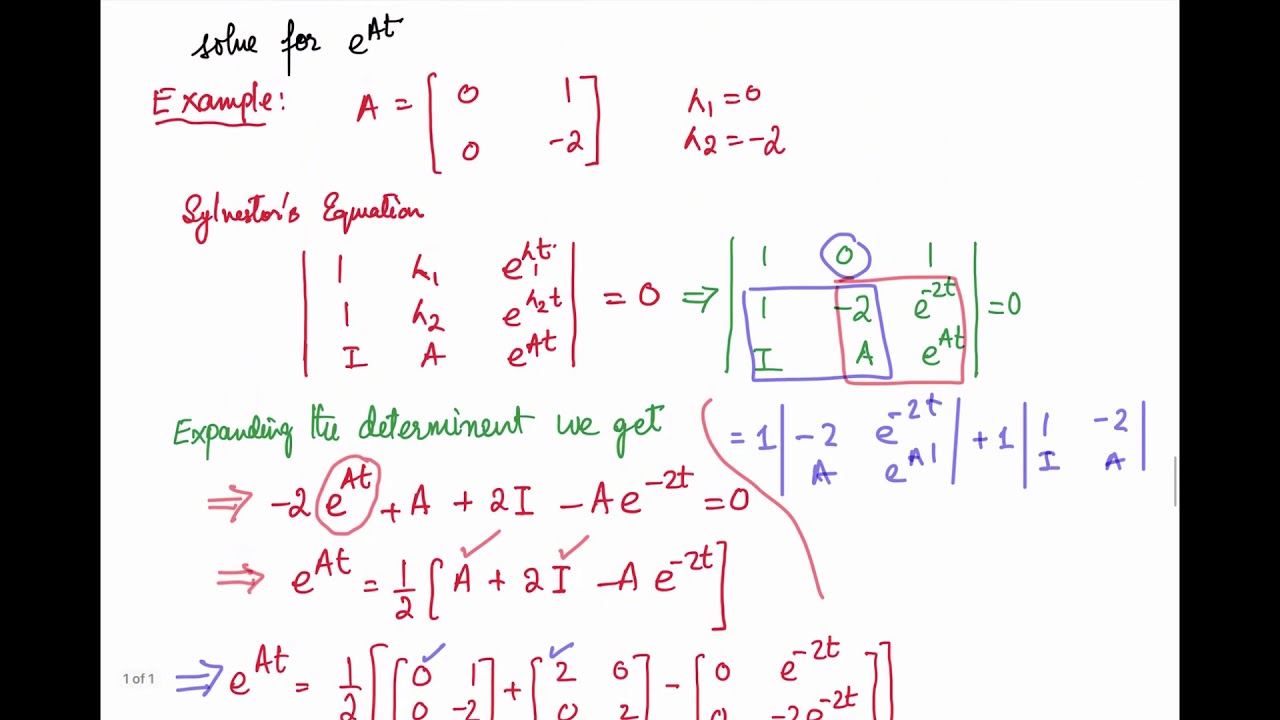 solve for e^{At}
Example: A = [ 0 1 ; 0 -2 ] λ₁ = 0 λ₂ = -2
Sylvestor's Equation
| 1 λ₁ e^{λ₁t} ; 1 λ₂ e^{λ₂t} ; I A e^{At} | = 0 ⇒ | 1 0 1 ; 1 -2 e^{-2t} ; I A e^{At} | = 0
Expanding the determinent we get
= 1 | -2 e^{-2t} ; A e^{At} | + 1 | 1 -2 ; I A |
⇒ -2 e^{At} + A + 2I - A e^{-2t} = 0
⇒ e^{At} = 1/2 [ A + 2I - A e^{-2t} ]
⇒ e^{At} = 1/2 [ [ 0 1 ; 0 -2 ] + [ 2 0 ; 0 2 ] - [ 0 e^{-2t} ; 0 -2e^{-2t} ] ]
1 of 1